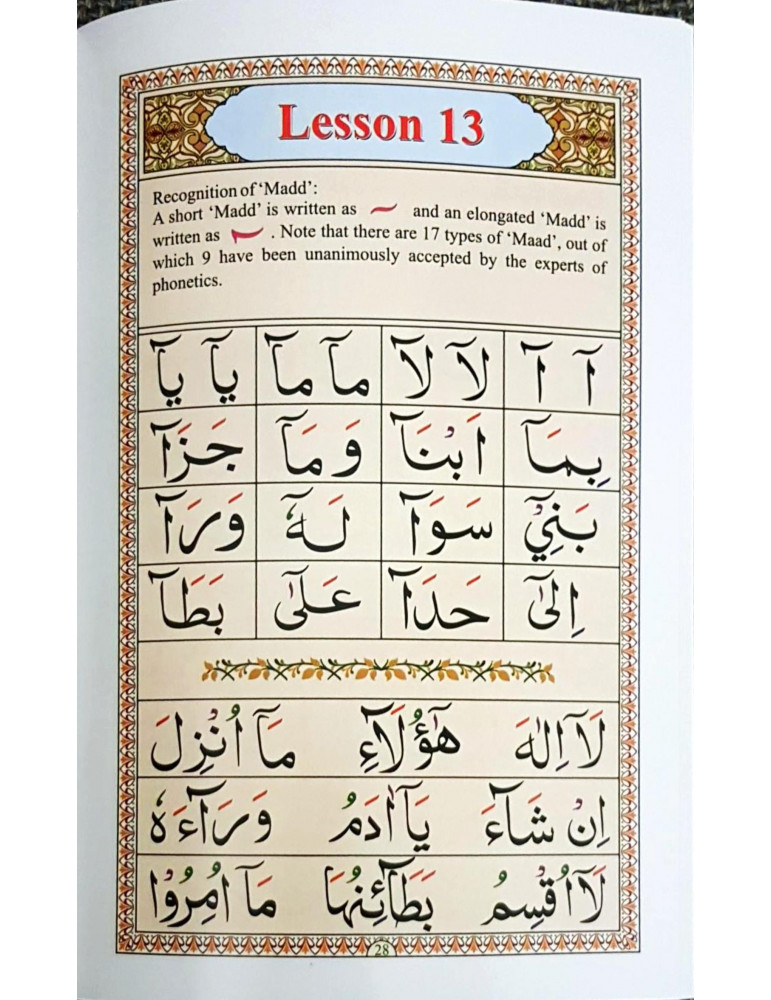 Lesson 13
Recognition of ‘Madd’:
A short ‘Madd’ is written as ∼ and an elongated ‘Madd’ is
written as ∼ . Note that there are 17 types of ‘Maad’, out of
which 9 have been unanimously accepted by the experts of
phonetics.
آ آ لآ لآ مآ مآ يآ يآ
بِمَآ اَبْنَآ وَمَآ جَزَآ
بَنِيْٓ سَوَآ لَهٗٓ وَرَآ
اِلىٰٓ حَدَآ عَلىٰٓ بَطَآ
لَآاِلٰهَ هٰٓؤُلَآءِ مَآ اُنْزِلَ
اِنْ شَآءَ يَآاٰدَمُ وَرَآءَهٗ
لَآاُقْسِمُ بَطَآئِنُهَا مَآ اُمِرُوْا
28